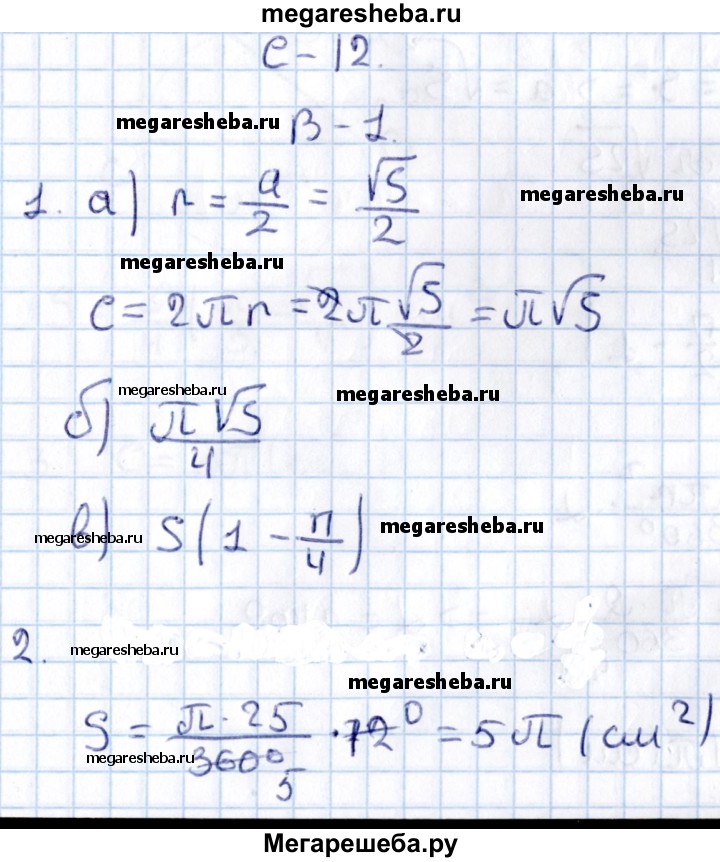 megaresheba.ru
С-12.
megaresheba.ru
В-1.
1. а) r = a/2 = √5/2
megaresheba.ru
megaresheba.ru
C = 2πr = 2π√5/2 = π√5
megaresheba.ru
megaresheba.ru
б) π√5/4
в) S(1 - π/4)
megaresheba.ru
megaresheba.ru
2.
megaresheba.ru
megaresheba.ru
S = π·25/360° · 72° = 5π (см²)
5
megaresheba.ru
Мегарешеба.ру